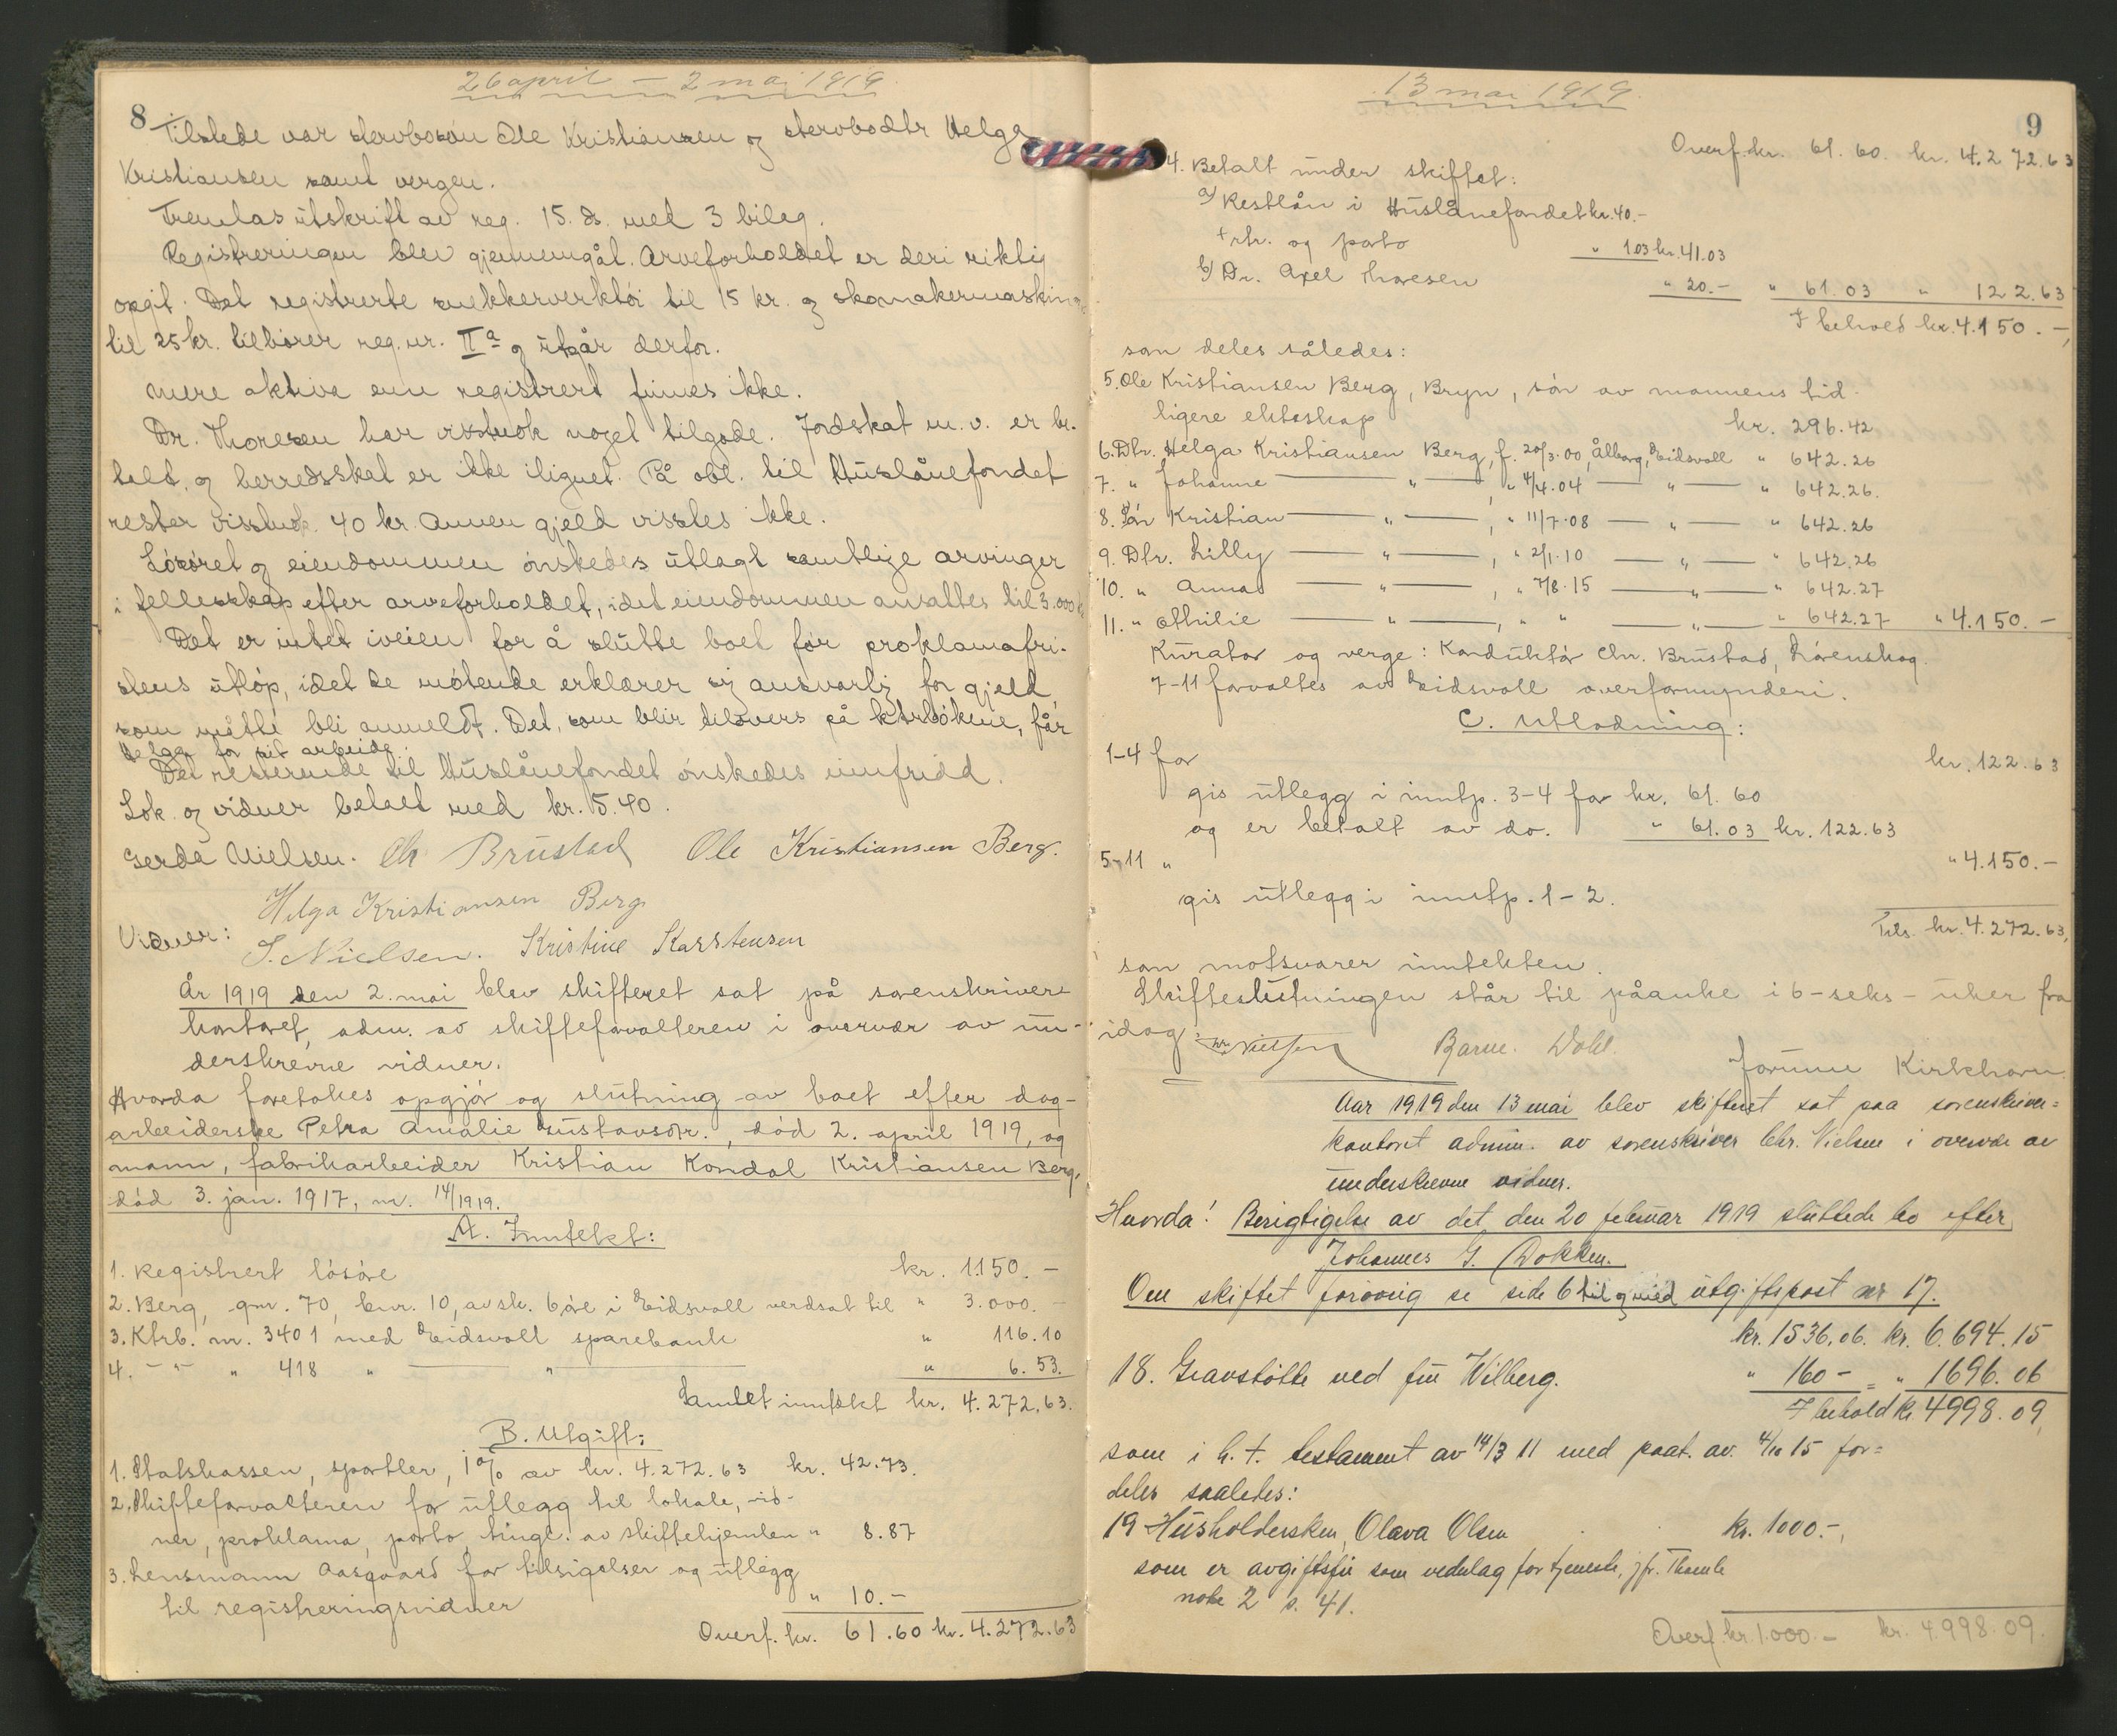 26 april – 2 mai 1919.
8
Tilstede var stervbosøn Ole Kristiansen og stervbodtr Helga
Kristiansen samt vergen.
Fremlas utskrift av reg. 15. ds. med 3 bilag.
Registreringen blev gjennemgåt. Arveforholdet er deri riktig
opgit. Det registrerte snekkerverktøi til 15 kr. og skomakermaskin
til 25 kr. tilhører reg. nr. IIa og utgår derfor.
Mere aktiva enn registrert finnes ikke.
Dr. Thoresen har visstnok noget tilgode. Jordskat m.v. er be-
talt, og herredsskat er ikke ilignet. På obl. til Huslånefondet
rester visstnok 40 kr. Annen gjeld visstes ikke.
Løsøret og eiendommen ønskedes utlagt samtlige arvinger
i fellesskap efter arveforholdet, idet eiendommen ansattes til 3.000 kr
Det er intet iveien for å slutte boet før proklamafri-
stens utløp, idet de møtende erklærer sig ansvarlig for gjeld,
som måtte bli anmeldt. Det, som blir tilovers på ktrbøkene, får
Helga for sit arbeide.
Det resterende til Huslånefondet ønskedes innfridd.
Lok. og vidner betalt med kr. 5.40.
Gerda Nielsen. Chr Brustad Ole Kristiansen Berg.
Helga Kristiansen Berg
Vidner:
S. Nielsen. Kristine Karstensen
År 1919 den 2. mai blev skifteret sat på sorenskriver-
kontoret, adm. av skifteforvalteren i overvær av un-
derskrevne vidner.
Hvorda foretokes opgjør og slutning av boet efter dag-
arbeiderske Petra Amalie Gustavsdtr., død 2. april 1919, og
mann, fabrikarbeider Kristian Kondal Kristiansen Berg,
død 3. jan. 1917, nr. 14/1919.
A. Inntekt:
1. Registrert løsøre kr. 1150.–
2. Berg, gnr. 70, bnr. 10, av sk. 6 øre i Eidsvoll verdsat til " 3.000.–
3. Ktrb. nr. 3401 med Eidsvoll sparebank " 116.10
4. –"– " 418 " –– " –– " 6.53.
Samlet inntekt kr. 4.272.63.
B. Utgift:
1. Statskassen, sportler, 1% av kr. 4.272.63 kr. 42.73.
2. Skifteforvalteren for utlegg til lokale, vid-
ner, proklama, porto, tingl. av skiftehjemlen " 8.87
3. Lensmann Aasgaard for tilsigelser og utlegg
til registreringsvidner " 10.–
Overf. kr. 61.60 kr. 4.272.63
13 mai 1919.
9
Overf. kr. 61.60. kr. 4.272.63
4. Betalt under skiftet:
a/ Restlån i Huslånefondet kr. 40.–
+ rtr. og porto " 1.03 kr. 41.03
b/ Dr. Axel Thoresen " 20.– " 61.03 " 122.63
I behold kr. 4.150.–,
som deles således:
5. Ole Kristiansen Berg, Bryn, søn av mannens tid-
ligere ekteskap kr. 296.42
6. Dtr. Helga Kristiansen Berg, f. 20/3.00, Ålborg, Eidsvoll " 642.26
7. " Johanne –– " ––, " 4/4.04 –– " –– " 642.26.
8. Søn Kristian –– " ––, " 11/7.08 –– " –– " 642.26
9. Dtr. Lilly –– " ––, " 2/1.10 –– " –– " 642.26
10. " Anna –– " ––, " 7/8.15 –– " –– " 642.27
11. " Othilie –– " ––, " " –– " –– " 642.27 " 4.150.–
Kurator og verge: Konduktør Chr. Brustad, Lørenskog.
7–11 forvaltes av Eidsvoll overformynderi.
C. Utlodning:
1–4 for kr. 122.63
gis utlegg i inntp. 3–4 for kr. 61.60
og er betalt av do. " 61.03 kr. 122.63
5–11 " " 4.150.–
gis utlegg i inntp. 1–2.
Tils. kr. 4.272.63,
som motsvarer inntekten.
Skifteslutningen står til påanke i 6–seks–uker fra
idag.
Chr Nielsen Barne. Dahl. Jorunn Kirkhorn.
Aar 1919 den 13 mai blev skifteret sat paa sorenskriver=
kontoret admin. av sorenskriver Chr. Nielsen i overvær av
underskrevne vidner.
Hvorda! Berigtigelse av det den 20 februar 1919 sluttede bo efter
Johannes G. Dokken.
Om skiftet forøvrig se side 6 til og med utgiftspost nr 17.
kr. 1536.06. kr. 6.694.15
18. Gravstøtte ved fru Wilberg. " 160 – = " 1696.06
I behold kr. 4998.09,
som i h. t. testament av 14/3 11 med paat. av 4/11 15 for=
deles saaledes:
19 Husholdersken, Olava Olsen kr. 1000.–,
som er avgiftsfri som vederlag for tjeneste, jfr. Thomle
note 2 s. 41.
Overf. kr. 1.000.– kr. 4.998.09.